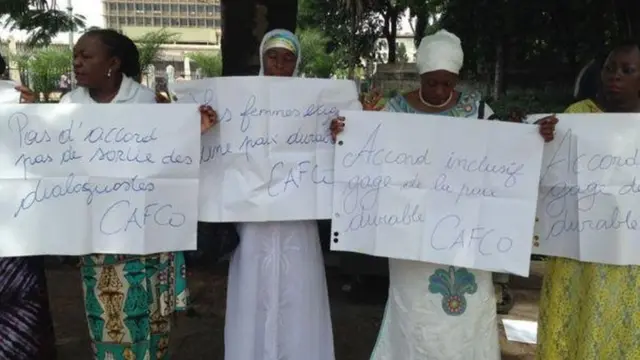 Pas d'accord
pas de sortie des
dialoguistes
CAFCO
femmes
une paix durable
CAFCO
Accord inclusif
gage de la paix
durable
CAFCO
Accord
gage d
durable